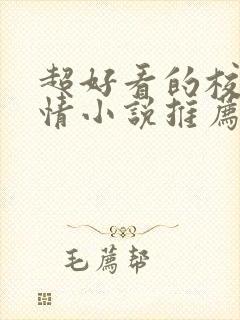 超好看的校
情小説推薦
毛薦幇